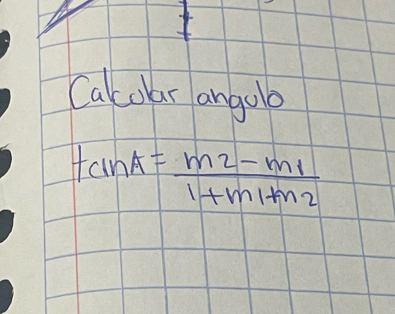 Calcular angulo
tanA = m2 - m1
1 + m1 + m2